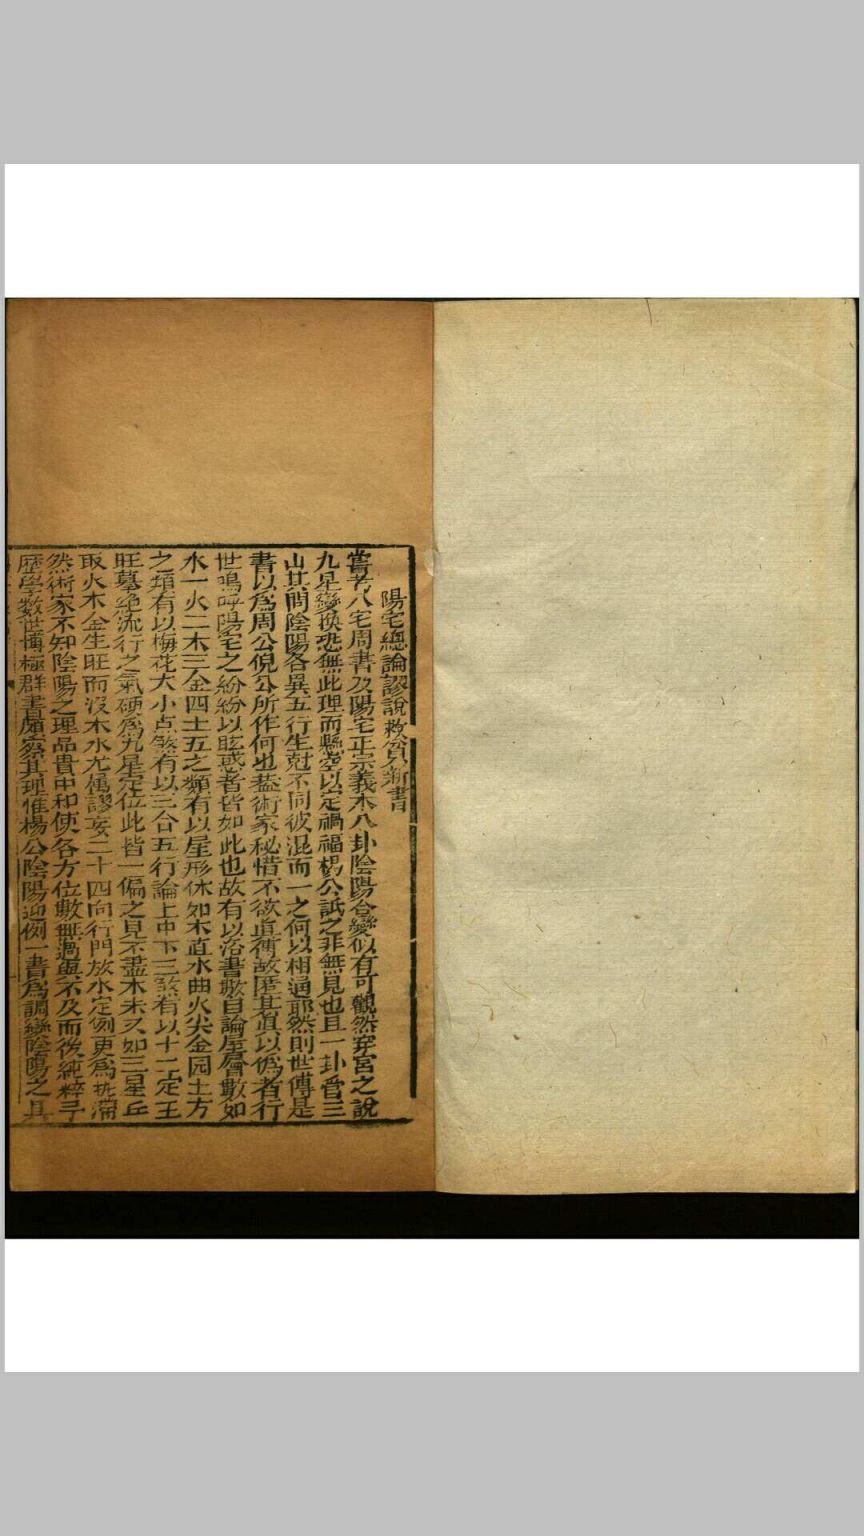 陽宅總論謬說救貧新書
嘗考八宅周書及陽宅正宗義本八卦陰陽合變似有可觀然穿宮之說
九星變換恐無此理而懸空以定禍福楊公詆之非無見也且一卦管三
山其間陰陽各異五行生尅不同彼混而一之何以相通耶然則世傳是
書以為周公倪公所作何也葢術家秘惜不欲真傳故匿其真以僞者行
世嗚呼陽宅之紛紛以眩惑者皆如此也故有以洛書數目論屋層數如
水一火二木三金四土五之類有以星形休如木直水曲火尖金园土方
之類有以梅花大小点煞有以三合五行論上中下三煞有以十二定王
旺墓絕流行之氣硬為九星定位此皆一偏之見不盡木未又如三星丘
取火木金生旺而没木水尤属謬妄二十四向行門放水定例更為
然術家不知陰陽之理品貴中和使各方位數無過與不及而後純粹
歴學数世慱極群書頗察其理惟楊公陰陽迎例一書為調變陰陽之具